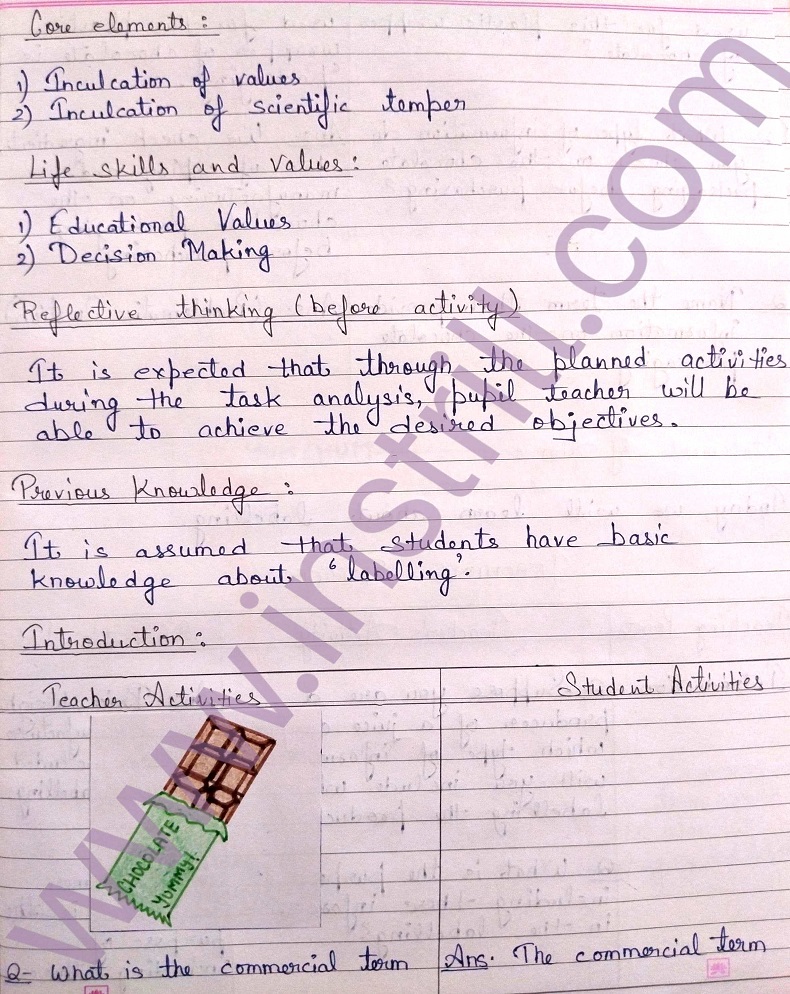 Core elements :
1) Inculcation of values
2) Inculcation of scientific temper
Life skills and values :
1) Educational Values
2) Decision Making
Reflective thinking (before activity)
It is expected that through the planned activities
during the task analysis, pupil teacher will be
able to achieve the desired objectives.
Previous Knowledge :
It is assumed that students have basic
knowledge about 'labelling'.
Introduction :
Teacher Activities
Student Activities
CHOCOLATE
YUMMY!
Q- What is the commercial term
Ans. The commercial term
www.instrill.com